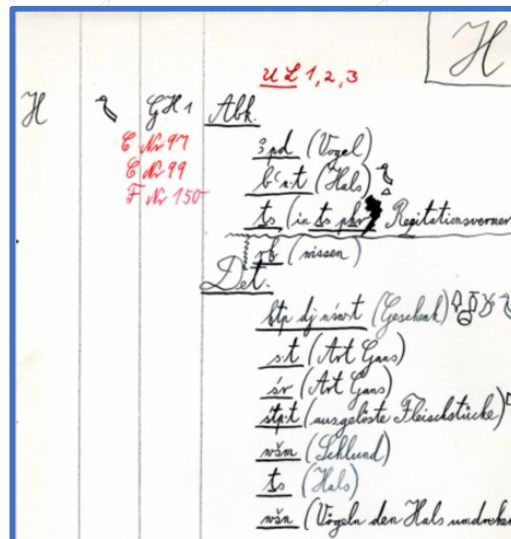 H
UL 1,2,3
H GH 1 Abk.
E Nr 97 ꜣpd (Vogel)
E Nr 99 bꜥn.t (Hals)
F Nr 150 ṯs (in ṯs pẖr Rezitationsvermer
rḫ (wissen)
Det.
ḥtp dj nśwt (Geschenk)
s.t (Art Gans)
śr (Art Gans)
śtp.t (ausgelöste Fleischstücke)
(Schlund)
ṯs (Hals)
wšn (Vögeln den Hals umdrehen